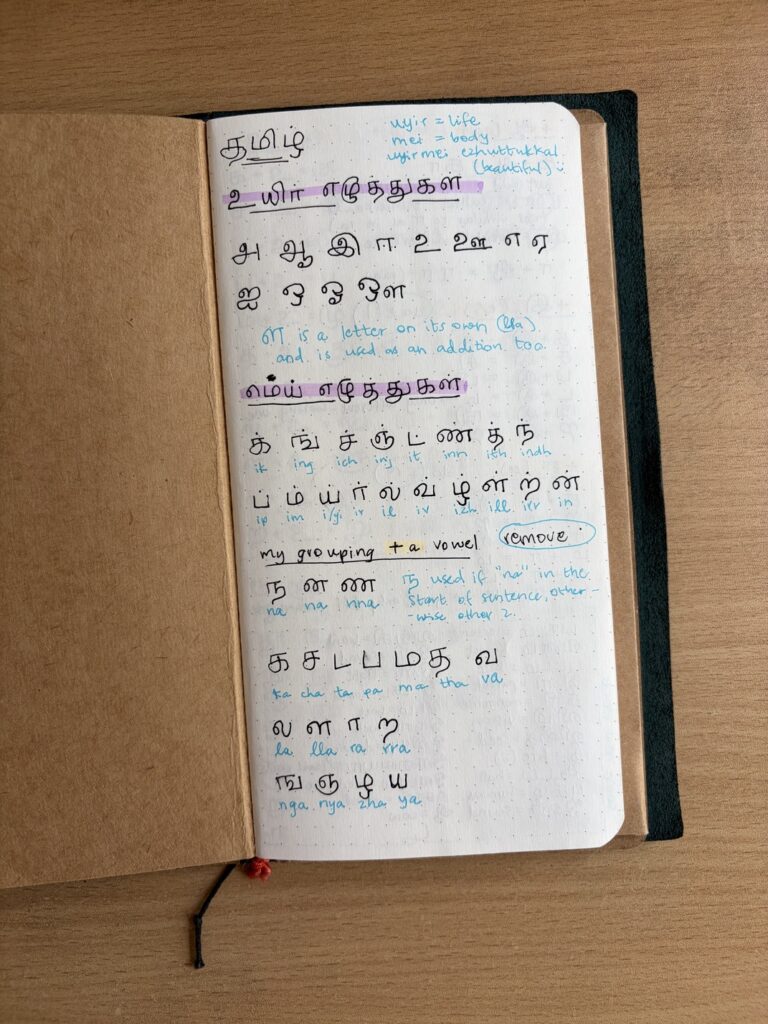 தமிழ்
uyir = life
mei = body
uyirmei ezhuttukkal
(beautiful) :)
உயிர் எழுத்துகள்
அ ஆ இ ஈ உ ஊ எ ஏ
ஐ ஒ ஓ ஔ
ள is a letter on its own (lla)
and is used as an addition too.
மெய் எழுத்துகள்
க் ங் ச் ஞ் ட் ண் த் ந்
ik ing ich inj it inn ith indh
ப் ம் ய் ர் ல் வ் ழ் ள் ற் ன்
ip im i/y. ir il iv izh ill irr in
my grouping + a vowel
remove
ந ன ண
na na nna
ந used if "na" in the
start of sentence, other-
-wise other 2.
க ச ட ப ம த வ
ka cha ta pa ma tha va
ல ள ர ற
la lla ra rra
ங ஞ ழ ய
nga nya zha ya